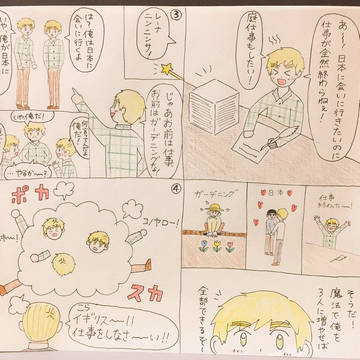 あ〜!日本に会いに行きたいのに
仕事が全然終わらねぇ!
庭仕事もしたい!
ガーデニング
日本
仕事
終わったー!
そうだ!
魔法で俺を
3人に増やせば
全部できるぞ!
③
レーナ
ニンニンサ!
じゃあお前は仕事
お前はガーデニングな!
は?俺は日本に
会いに行くよ
いや、俺が日本に
俺だ!
…やるか〜?
④
ポカ
スカ
コノヤロー!
こら
イギリス〜!!
仕事をしなさ〜い!!